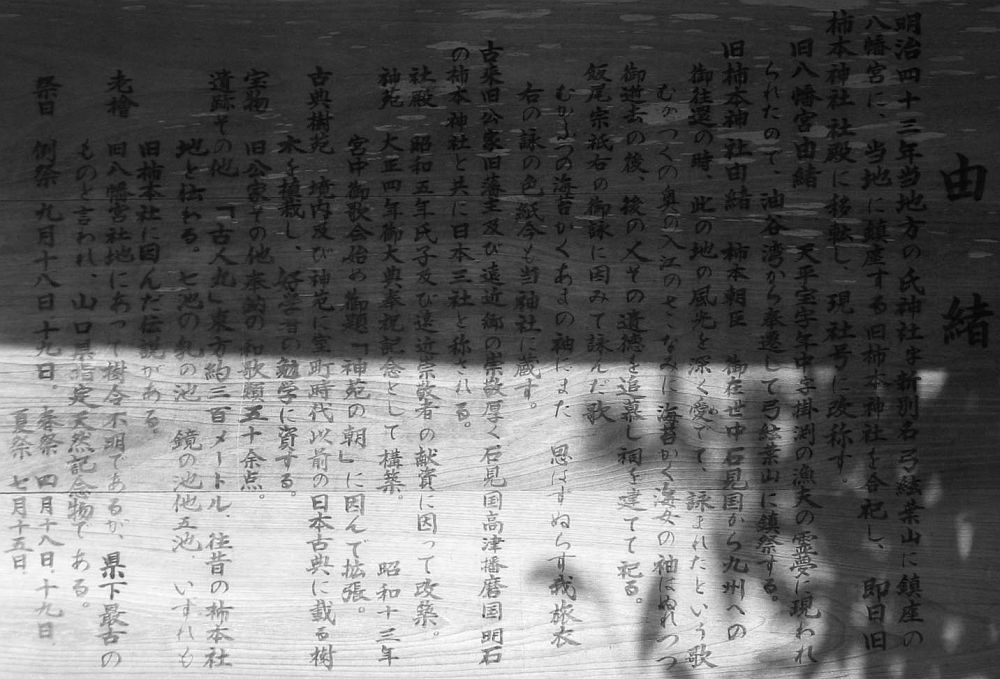 由緒
明治四十三年当地方の氏神社字新別名弓絃葉山に鎮座の
八幡宮に、当地に鎮座する旧柿本神社を合祀し、即日旧
柿本神社社殿に移転し、現社号に改称す。
旧八幡宮由緒 天平宝字年中字掛渕の漁夫の霊夢に現われ
られたので、油谷湾から奉遷して弓絃葉山に鎮祭する。
旧柿本神社由緒 柿本朝臣 御在世中石見国から九州への
御往還の時、此の地の風光を深く愛でて、詠まれたという歌
むかつくの奥の入江のささなみに海苔かく海女の袖はぬれつつ
御逝去の後、後の人その遺徳を追慕し祠を建てて祀る。
飯尾宗祇右の御詠に因みて詠んだ歌
むかつの海苔かくあまの袖にまた 思はすぬらす我旅衣
右の詠の色紙今も当神社に蔵す。
古来旧公家旧藩主及び遠近郷の崇敬厚く石見国高津播磨国明石
の柿本神社と共に日本三社と称される。
社殿 昭和五年氏子及び遠近崇敬者の献資に因って改築。
神苑 大正四年御大典奉祝記念として構築。 昭和十三年
宮中御歌会始め御題「神苑の朝」に因んで拡張。
古典樹苑 境内及び神苑に室町時代以前の日本古典に載る樹
木を植栽し、好学者の勉学に資する。
宝物 旧公家その他奉納の和歌類五十余点。
遺跡その他 「古人丸」東方約三百メートル、往昔の柿本社
地と伝わる。七池の乳の池 鏡の池他五池、いずれも
旧柿本社に因んだ伝説がある。
老檜 旧八幡宮社地にあって樹令不明であるが、県下最古の
ものと言われ、山口県指定天然記念物である。
祭日 例祭 九月十八日十九日。春祭 四月十八日十九日
夏祭 七月十五日